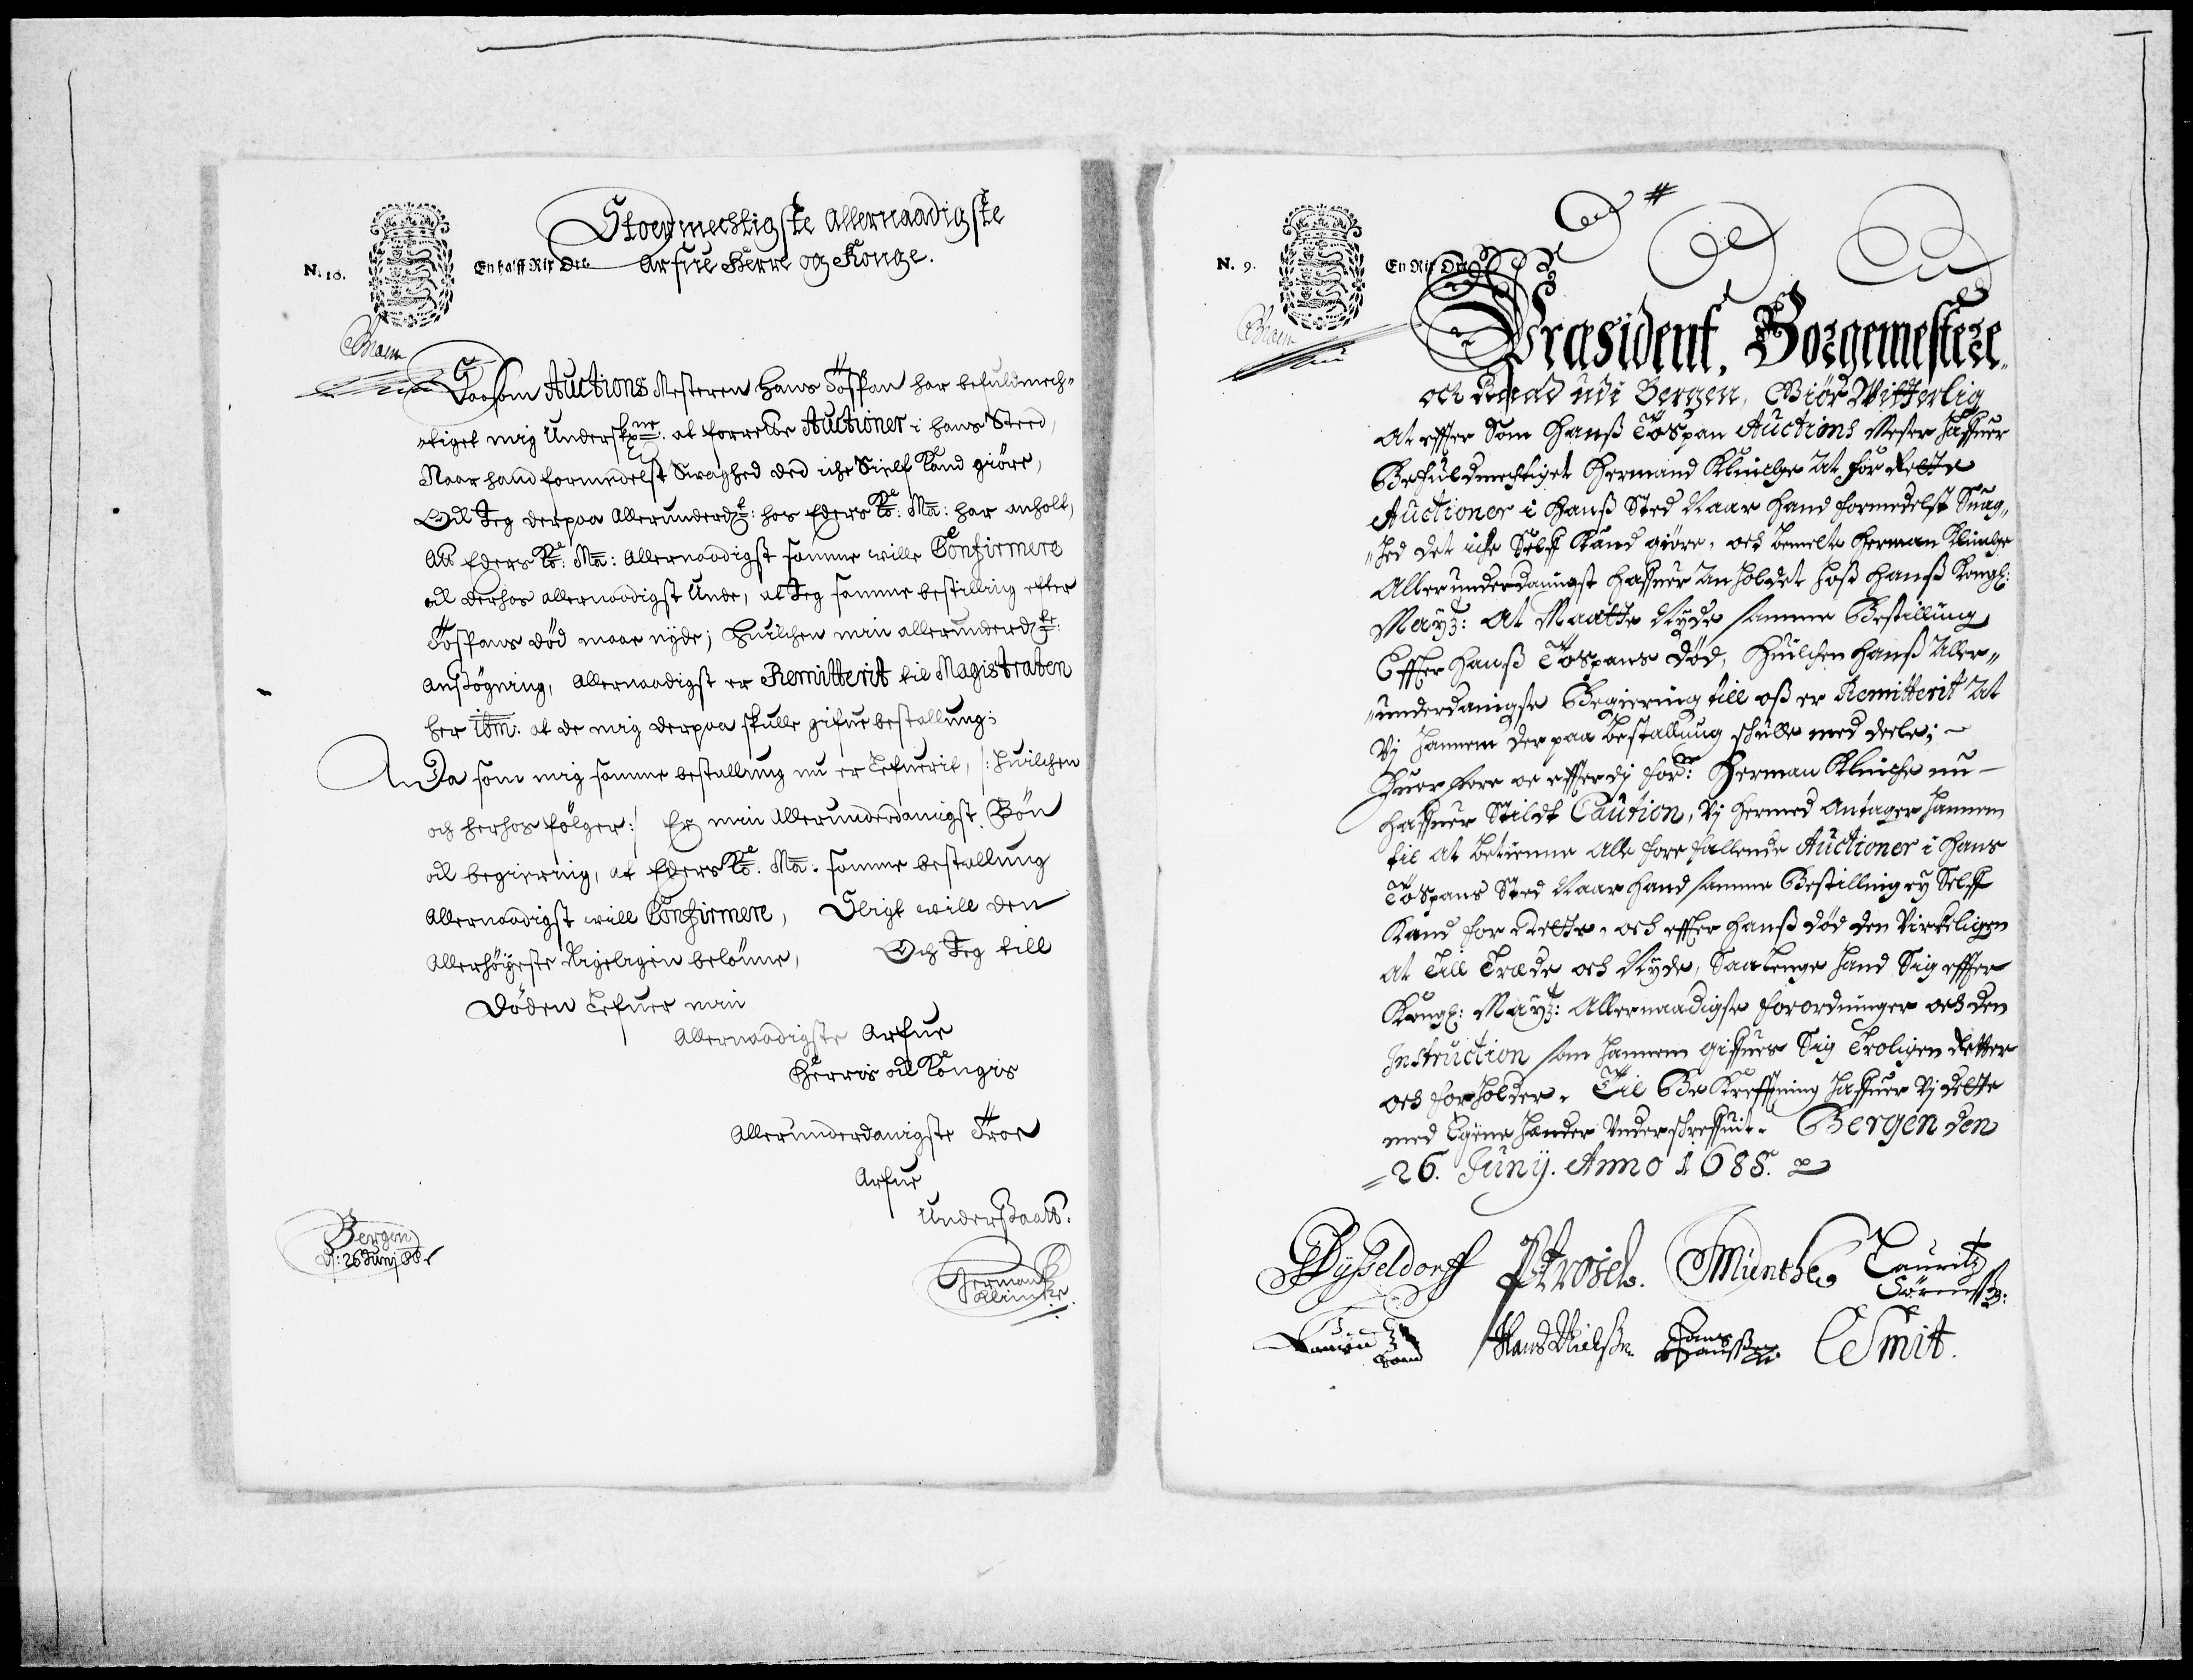 Stoermechtigste Allernaadigste
N. 10. En half Rix Dlr. Arfue Herre og Konge.
Saasom Auctions Mesteren Hans Töspan har befuldmech-
-tiget mig Underskne. at forrette Auctioner i hans Sted,
Naar hand formedelst Svaghed ded iche Sielf Kand giöre,
Och Jeg derpaa Allerunderdt: hos Eders Ko: Ma: har anholt,
At Eders Ko: Ma: Allernaadigst samme wille Confirmere
och derhos allernaadigst Unde, at Jeg samme bestilling efter
Töspans död maae nyde; Huilchen min allerunderdte:
ansögning, Allernaadigst er Remitterit til Magistraten
her ibm: at de mig derpaa skulle gifue bestallung;
Da som mig samme bestallung nu er Lefuerit, /: huilchen
och herhos fölger :/ Er min Allerunderdanigst Bön
och begiering, at Eders Ko: Ma: samme bestallung
Allernaadigst will Confirmere, Sligt will den
Allerhöyeste Rigeligen belönne, Och Jeg till
Döden Lefuer min
Allernaadigste Arfue
Herris och Kongis
Allerunderdanigste Troe
Arfue
Undersaatt.
Bergen
d: 26 Junj 88
Herman
Klincke.
N. 9. En Rix Dlr.
Præsident, Borgemestere
och Raad udi Bergen, Giör Witterlig
At effter Som Hanß Töspan Auctions Mester Haffuer
Befuldmechtiget Hermand Klinche At for Rette
Auctioner i Hanß Sted Naar Hand formedelst Suag-
-hed det iche Self Kand giöre, och bemelte Herman Klinche
Allerunderdanigst haffuer Anholdet hoß Hanß Kongl:
Mayt: At Maatte Nyde samme Bestilling
Effter Hanß Töspans Död, Huilchen Hanß Aller-
-underdanigste Begiering till oß er Remitterit At
Vj Hannem der paa Bestallung schulle med deele;
Huorfore oc effterdj forde: Herman Klinche nu
haffuer Stildt Caution, Vj Hermed Antager Hannem
til at betienne Alle fore fallende Auctioner i Hans
Töspans Sted Naar Hand samme Bestilling ey Self
Kand for Rette, och effter Hanß död den Virkeligen
at Till Træde och Nyde, Saalenge Hand Sig effter
Kongl: Mayt: Allernaadigste forordninger och den
Instruction som Hannem giffues Sig Troligen Retter
och forholder. Til Bekrefftning Haffuer Vj dette
med Egene Hænder Underschreffuit. Bergen den
26. Junij. Anno 1688.
Dysseldorff Munthe Lauritz
Sörenß:
Hans Nielßn. Hans
Hanßen Smitt.